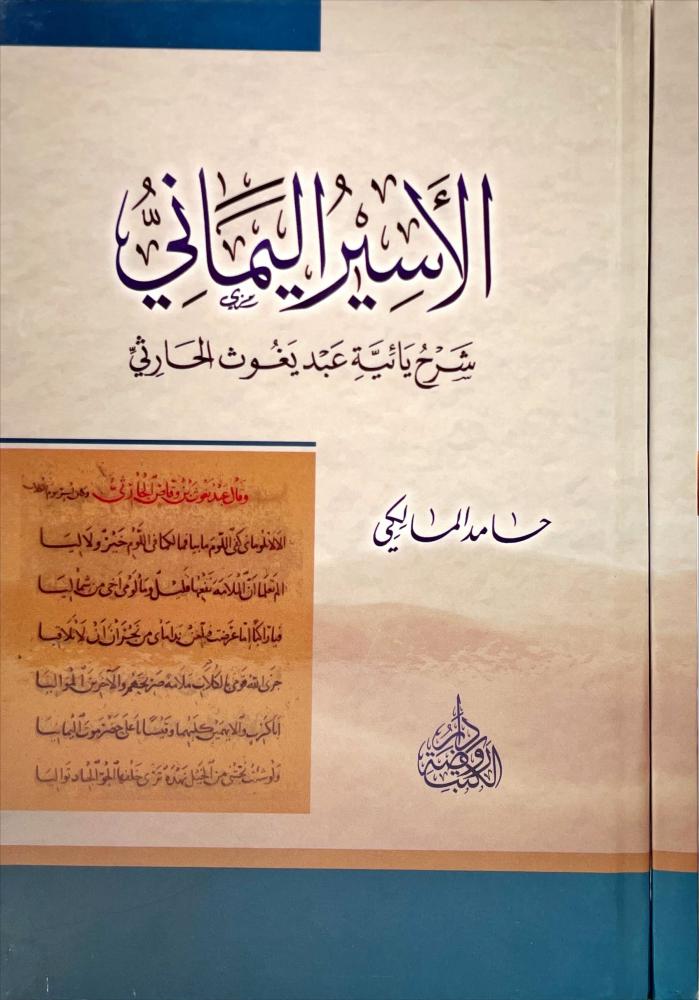 الأَسِيرُ اليَمَانِيُّ
شَرْحُ يَائِيَّةِ عَبْد يَغُوث الحَارِثيِّ
حامد المالكي
وقال عبد يغوث بن وقاص الحارثي وكان اسر يوم الكلاب
الا لا تلوماني كفى اللوم ما بيا فما لكما في اللوم خير ولا ليا
الم تعلما ان الملامة نفعها قليل وما لومي اخي من شماليا
فيا راكبا اما عرضت فبلغن نداماي من نجران ان لا تلاقيا
جزى الله قومي بالكلاب ملامة صريحهم والآخرين المواليا
ابا كرب والايهمين كليهما وقيسا باعلى حضرموت اليمانيا
ولو شئت نجتني من الخيل نهدة ترى خلفها الحو الجياد تواليا
دار
روضة
الكتب